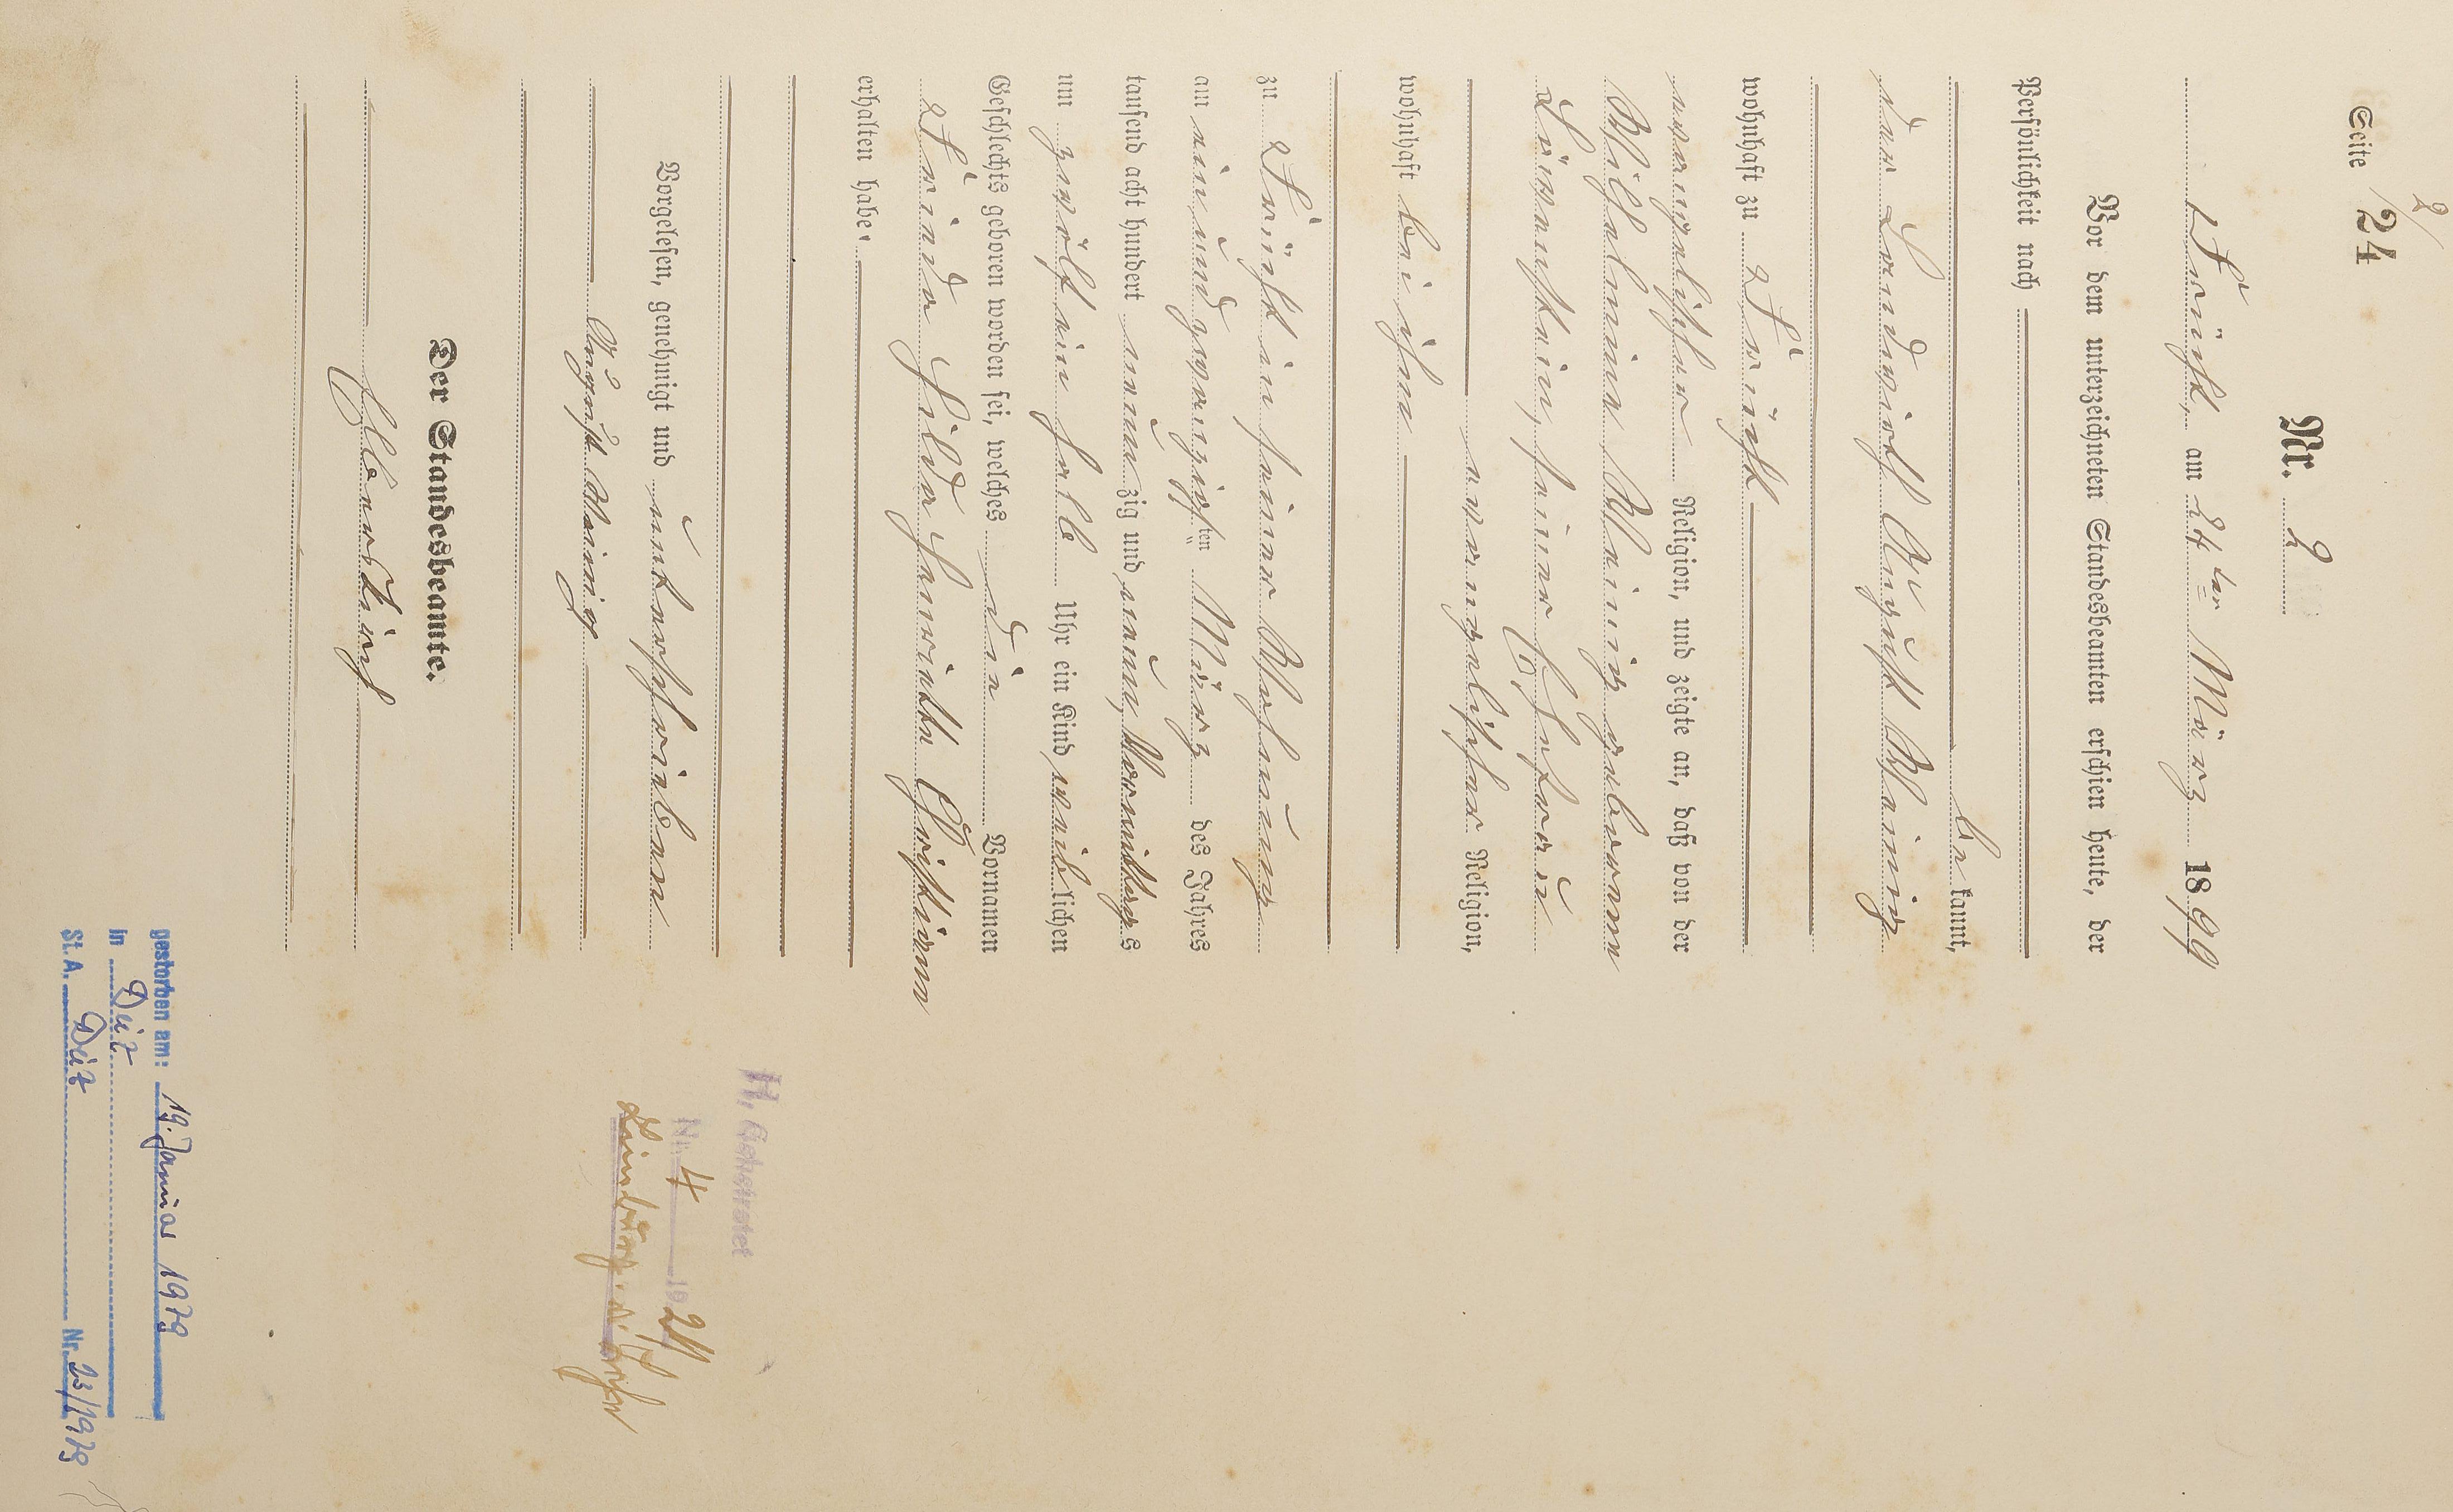 Seite 24
Nr. 2
am 24ten März 1899
Vor dem unterzeichneten Standesbeamten erschien heute, der
Persönlichkeit nach
bekannt,
der Landwirth August Weinig
wohnhaft zu
evangelischer Religion, und zeigte an, daß von der
Wilhelmine Weinig geborenen
Löwenstein, seiner Ehefrau
evangelischer Religion,
wohnhaft bei ihm
zu in seiner Wohnung
am einundzwanzigsten März des Jahres
tausend acht hundert neunzig und neun, Vormittags
um zwölf ein halb Uhr ein Kind weiblichen
Geschlechts geboren worden sei, welches die Vornamen
Frieda Hilda Henriette Christiane
erhalten habe.
Vorgelesen, genehmigt und unterschrieben
August Weinig
Der Standesbeamte.
H. Geheiratet
Nr. 4 1921
Limburg a. d. Lahn
gestorben am: 19. Januar 1979
in Diez
St. A. Diez Nr. 23/1979